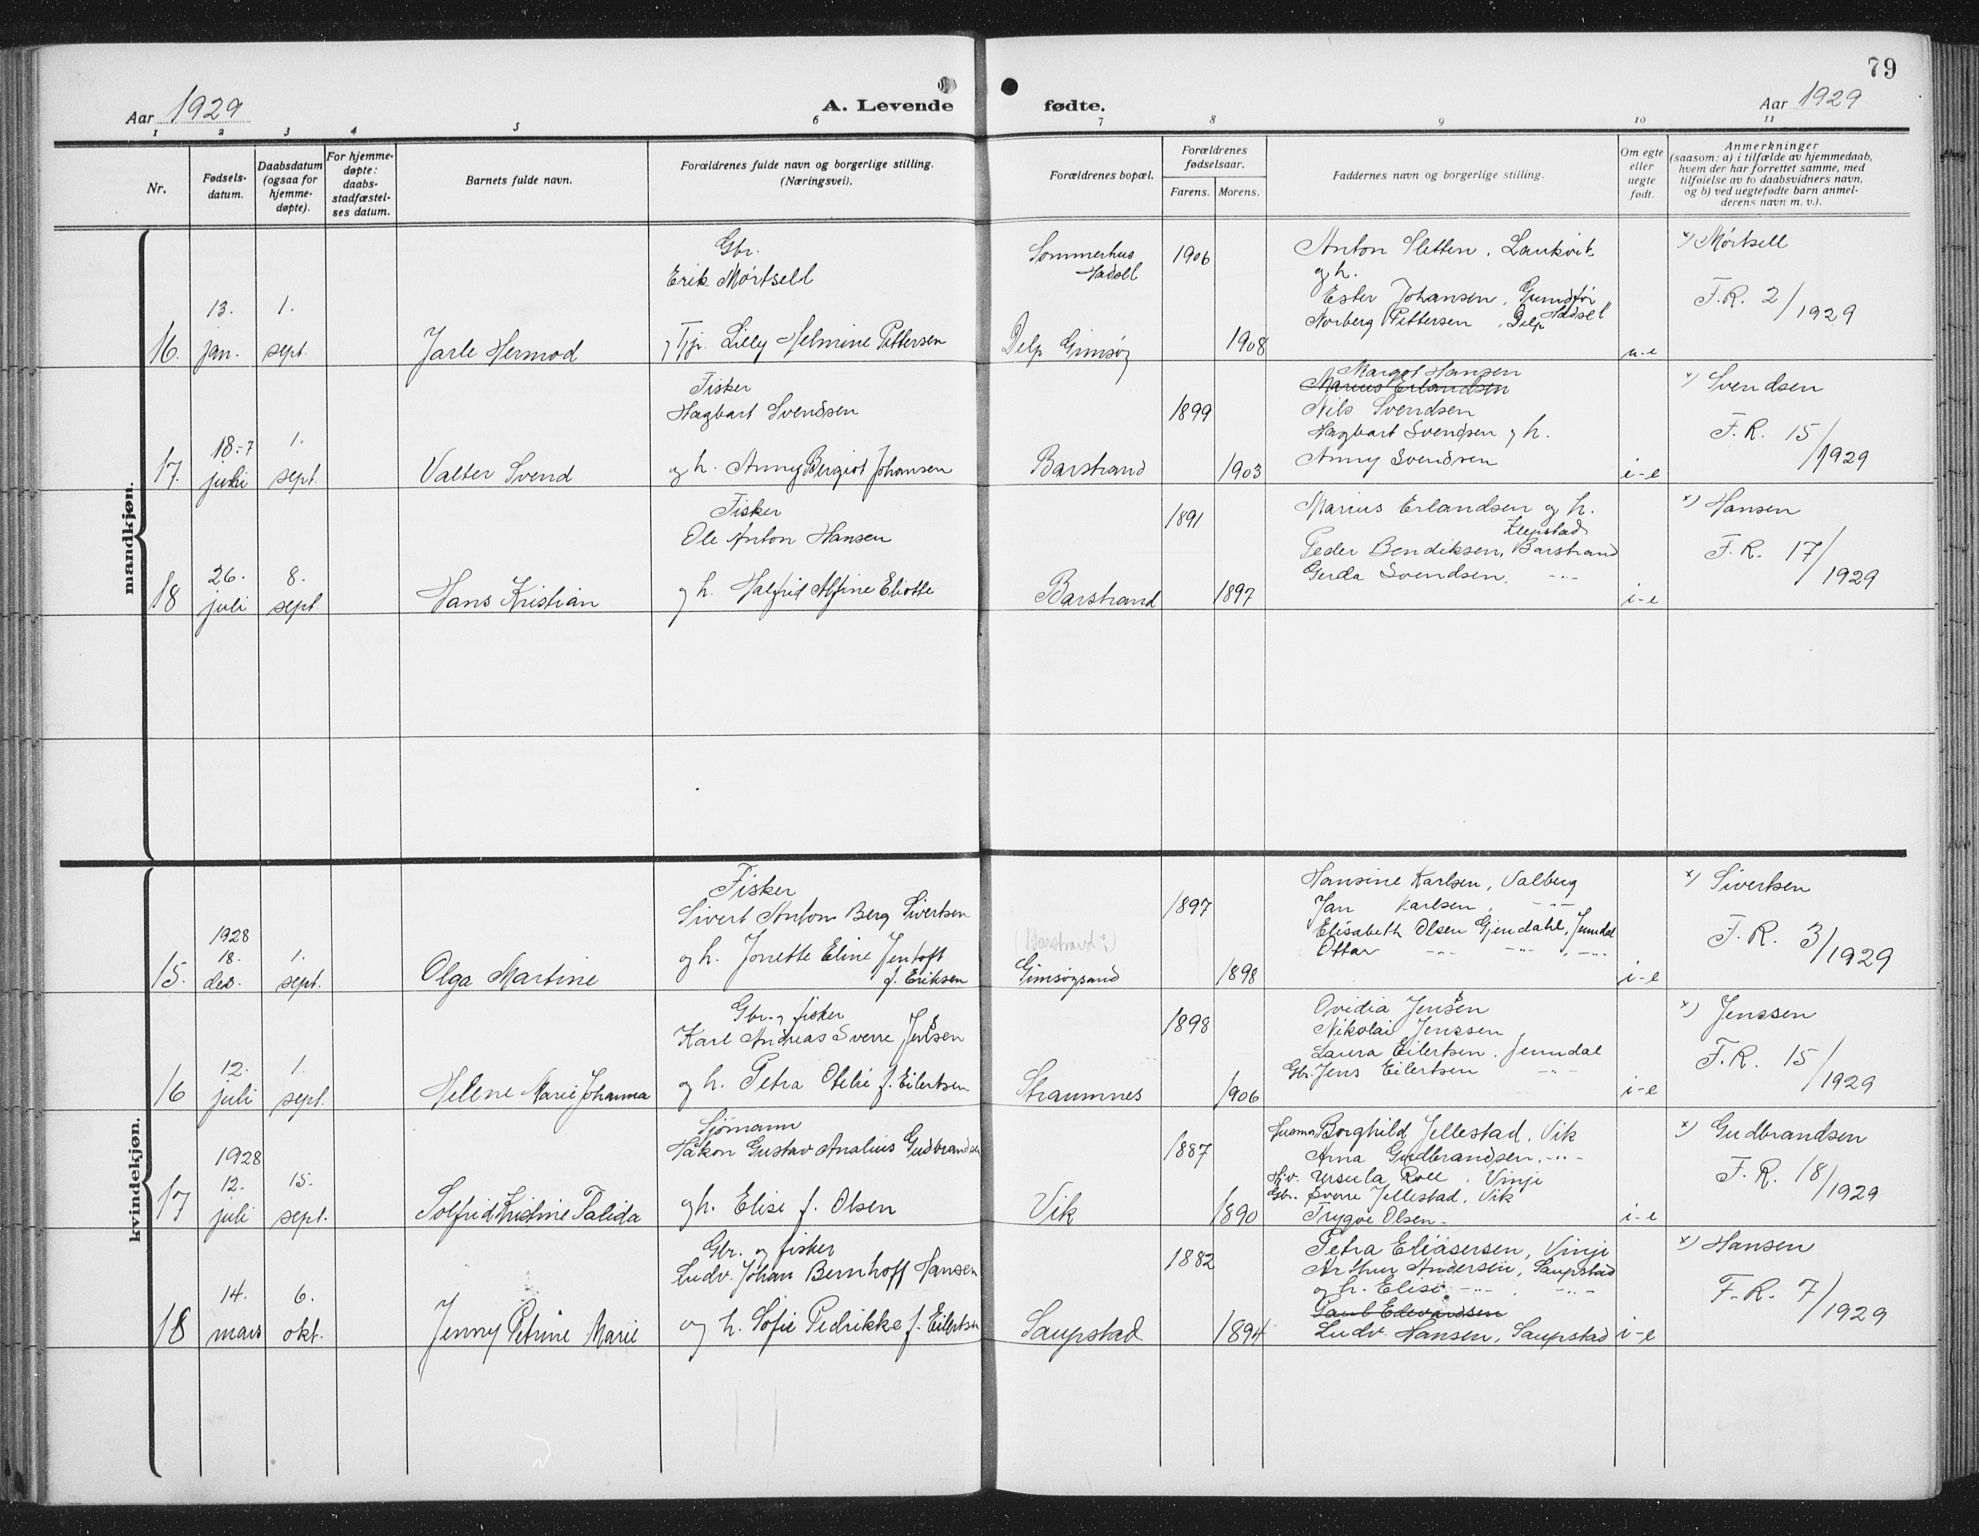 79
Aar 1929
A. Levende fødte.
Aar 1929
1 2 3 4 5 6 7 8 9 10 11
Nr.
Fødsels-
datum.
Daabsdatum
(ogsaa for
hjemme-
døpte).
For hjemme-
døpte:
daabs-
stadfæstel-
ses datum.
Barnets fulde navn.
Forældrenes fulde navn og borgerlige stilling.
(Næringsvei).
Forældrenes bopæl.
Forældrenes
fødselsaar.
Farens. Morens.
Faddernes navn og borgerlige stilling.
Om egte
eller
uegte
født.
Anmerkninger
(saasom: a) i tilfælde av hjemmedaab,
hvem der har forrettet samme, med
tilføielse av to daabsvidners navn,
og b) ved uegtefødte barn anmel-
derens navn m. v.).
mandkjøn.
16.
13.
jan.
1.
sept.
Jarle Hermod
Gbr.
Erik Mörtsell
Tjp. Lilly Helmine Pettersen
Sommerhus
Hadsel
Delp Gimsøy
1906
1908
Anton Sletten, Laukvik
og h.
Ester Johansen,
Hadsel
Norberg Pettersen, Delp
u-e
x) Mörtsell
F.R. 2/1929
17.
18.-7
juli
1.
sept.
Valter Svend
Fisker
Hagbart Svendsen
og h. Anny Bergiot Johansen
Barstrand
1899
1903
Margot Hansen
Marius Erlandsen
Nils Svendsen
Hagbart Svendsen og h.
Anny Svendsen
i-e
x) Svendsen
F.R. 15/1929
18
26.
juli
8.
sept.
Hans Kristian
Fisker
Ole Anton Hansen
og h. Halfrid Alfine Eliotte
Barstrand
1891
1897
Marius Erlandsen og h.
Klepstad
Peder Bendiksen, Barstrand
Gerda Svendsen. -"-
i-e
x) Hansen
F.R. 17/1929
kvindekjøn.
15.
1928
18.
des.
1.
sept.
Olga Martine
Fisker
Sivert Anton Berg Sivertsen
og h. Jonette Eline Jentoft
f. Eriksen
(Barstrand?)
Gimsøysand
1897
1898
Hansine Karlsen, Valberg
Jan Karlsen, -"-
Elisabeth Olsen Gjendahl, Jenndal
Ottar -"- -"- , -"-
i-e
x) Sivertsen
F.R. 3/1929
16
12.
juli
1.
sept.
Helene Marie Johanna
Gbr. og fisker
Karl Andreas Sverre Jenssen
og h. Petra Otelie f. Eilertsen
Straumnes
1898
1906
Ovidia Jenssen
Nikolai Jenssen
Laura Eilertsen. Jenndal
Gbr. Jens Eilertsen -"-
i-e
x) Jenssen
F.R. 15/1929
17
1928
12.
juli
15.
sept.
Solfrid Kristine Talida
Sjømann
Håkon Gustav Analius Gudbrandsen
og h. Elise f. Olsen
Vik
1887
1890
Husmor Borghild Jellestad, Vik
Arna Gudbrandsen, -"-
Hjv. Ursula Roll, Vinje
Gbr. Sverre Jellestad, Vik
Trygve Olsen -
i-e
x) Gudbrandsen
F.R. 18/1929
18
14.
mars
6.
okt.
Jenny Petrine Marie
Gbr. og fisker
Ludv. Johan Bernhoff Hansen
og h. Sofie Pedrikke f. Eilertsen
Saupstad
1882
1894
Petra Eliasersen, Vinje
Arthur Andersen, Saupstad
og h. Elise -"- , -"-
Paul Edvardsen
Ludv. Hansen, Saupstad
i-e
x) Hansen
F.R. 7/1929